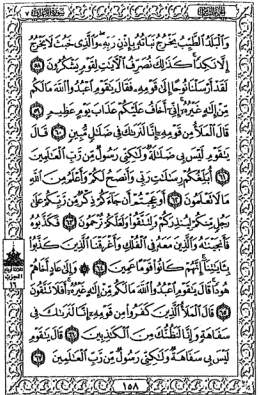 الجزء الثامن سورة الأعراف ٧
وَالْبَلَدُ الطَّيِّبُ يَخْرُجُ نَبَاتُهُ بِإِذْنِ رَبِّهِ وَالَّذِي خَبُثَ لَا يَخْرُجُ
إِلَّا نَكِدًا كَذَٰلِكَ نُصَرِّفُ الْآيَٰتِ لِقَوْمٍ يَشْكُرُونَ ٥٨
لَقَدْ أَرْسَلْنَا نُوحًا إِلَىٰ قَوْمِهِ فَقَالَ يَٰقَوْمِ اعْبُدُوا اللَّهَ مَا لَكُم
مِّنْ إِلَٰهٍ غَيْرُهُ إِنِّي أَخَافُ عَلَيْكُمْ عَذَابَ يَوْمٍ عَظِيمٍ ٥٩
قَالَ الْمَلَأُ مِن قَوْمِهِ إِنَّا لَنَرَىٰكَ فِي ضَلَٰلٍ مُّبِينٍ ٦٠ قَالَ
يَٰقَوْمِ لَيْسَ بِي ضَلَٰلَةٌ وَلَٰكِنِّي رَسُولٌ مِّن رَّبِّ الْعَٰلَمِينَ
٦١ أُبَلِّغُكُمْ رِسَٰلَٰتِ رَبِّي وَأَنصَحُ لَكُمْ وَأَعْلَمُ مِنَ اللَّهِ
مَا لَا تَعْلَمُونَ ٦٢ أَوَعَجِبْتُمْ أَن جَاءَكُمْ ذِكْرٌ مِّن رَّبِّكُمْ عَلَىٰ
رَجُلٍ مِّنكُمْ لِيُنذِرَكُمْ وَلِتَتَّقُوا وَلَعَلَّكُمْ تُرْحَمُونَ ٦٣ فَكَذَّبُوهُ
فَأَنجَيْنَٰهُ وَالَّذِينَ مَعَهُ فِي الْفُلْكِ وَأَغْرَقْنَا الَّذِينَ كَذَّبُوا
بِـَٔايَٰتِنَا إِنَّهُمْ كَانُوا قَوْمًا عَمِينَ ٦٤ وَإِلَىٰ عَادٍ أَخَاهُمْ
هُودًا قَالَ يَٰقَوْمِ اعْبُدُوا اللَّهَ مَا لَكُم مِّنْ إِلَٰهٍ غَيْرُهُ أَفَلَا تَتَّقُونَ
٦٥ قَالَ الْمَلَأُ الَّذِينَ كَفَرُوا مِن قَوْمِهِ إِنَّا لَنَرَىٰكَ فِي
سَفَاهَةٍ وَإِنَّا لَنَظُنُّكَ مِنَ الْكَٰذِبِينَ ٦٦ قَالَ يَٰقَوْمِ
لَيْسَ بِي سَفَاهَةٌ وَلَٰكِنِّي رَسُولٌ مِّن رَّبِّ الْعَٰلَمِينَ ٦٧
١٥٨